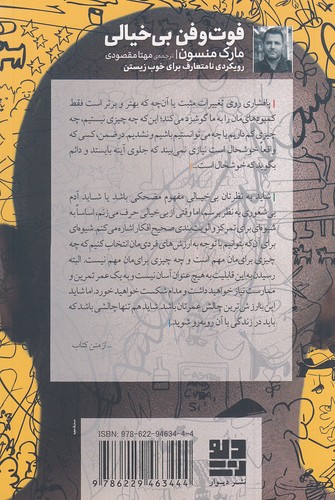 فوت‌وفن بی‌خیالی
مارک منسون | ترجمه‌ی مهتا مقصودی
رویکردی نامتعارف برای خوب زیستن
| پافشاری روی تغییرات مثبت یا آن‌چه که بهتر و برتر است فقط
کمبودهای‌مان را به ما گوشزد می‌کند؛ این‌که چه چیزی نیستیم، چه
چیزی کم داریم یا چه می‌توانستیم باشیم و نشدیم. در ضمن کسی که
واقعاً خوشحال است نیازی نمی‌بیند که جلوی آینه بایستد و دائم
بگوید که خوشحال است. |
| شاید به نظرتان بی‌خیالی مفهوم مضحکی باشد یا شاید آدم
بی‌شعوری به نظر برسم، اما وقتی از بی‌خیالی حرف می‌زنم، اساساً به
شیوه‌ای برای تمرکز و اولویت‌بندی صحیح افکار اشاره می‌کنم. شیوه‌ای
برای آن‌که بتوانیم با توجه به ارزش‌های فردی‌مان انتخاب کنیم که چه
چیزی برای‌مان مهم است و چه چیزی برای‌مان مهم نیست. البته
رسیدن به این قابلیت به هیچ عنوان آسان نیست و به یک عمر تمرین و
ممارست نیاز خواهید داشت و مدام شکست خواهید خورد. اما شاید
این باارزش‌ترین چالش عمرتان باشد. شاید هم تنها چالشی باشد که
باید در زندگی با آن روبه‌رو شوید. |
- از متن کتاب
ISBN: 978-622-94634-4-4
9 786229 463444
دیوار
نشر دیوار